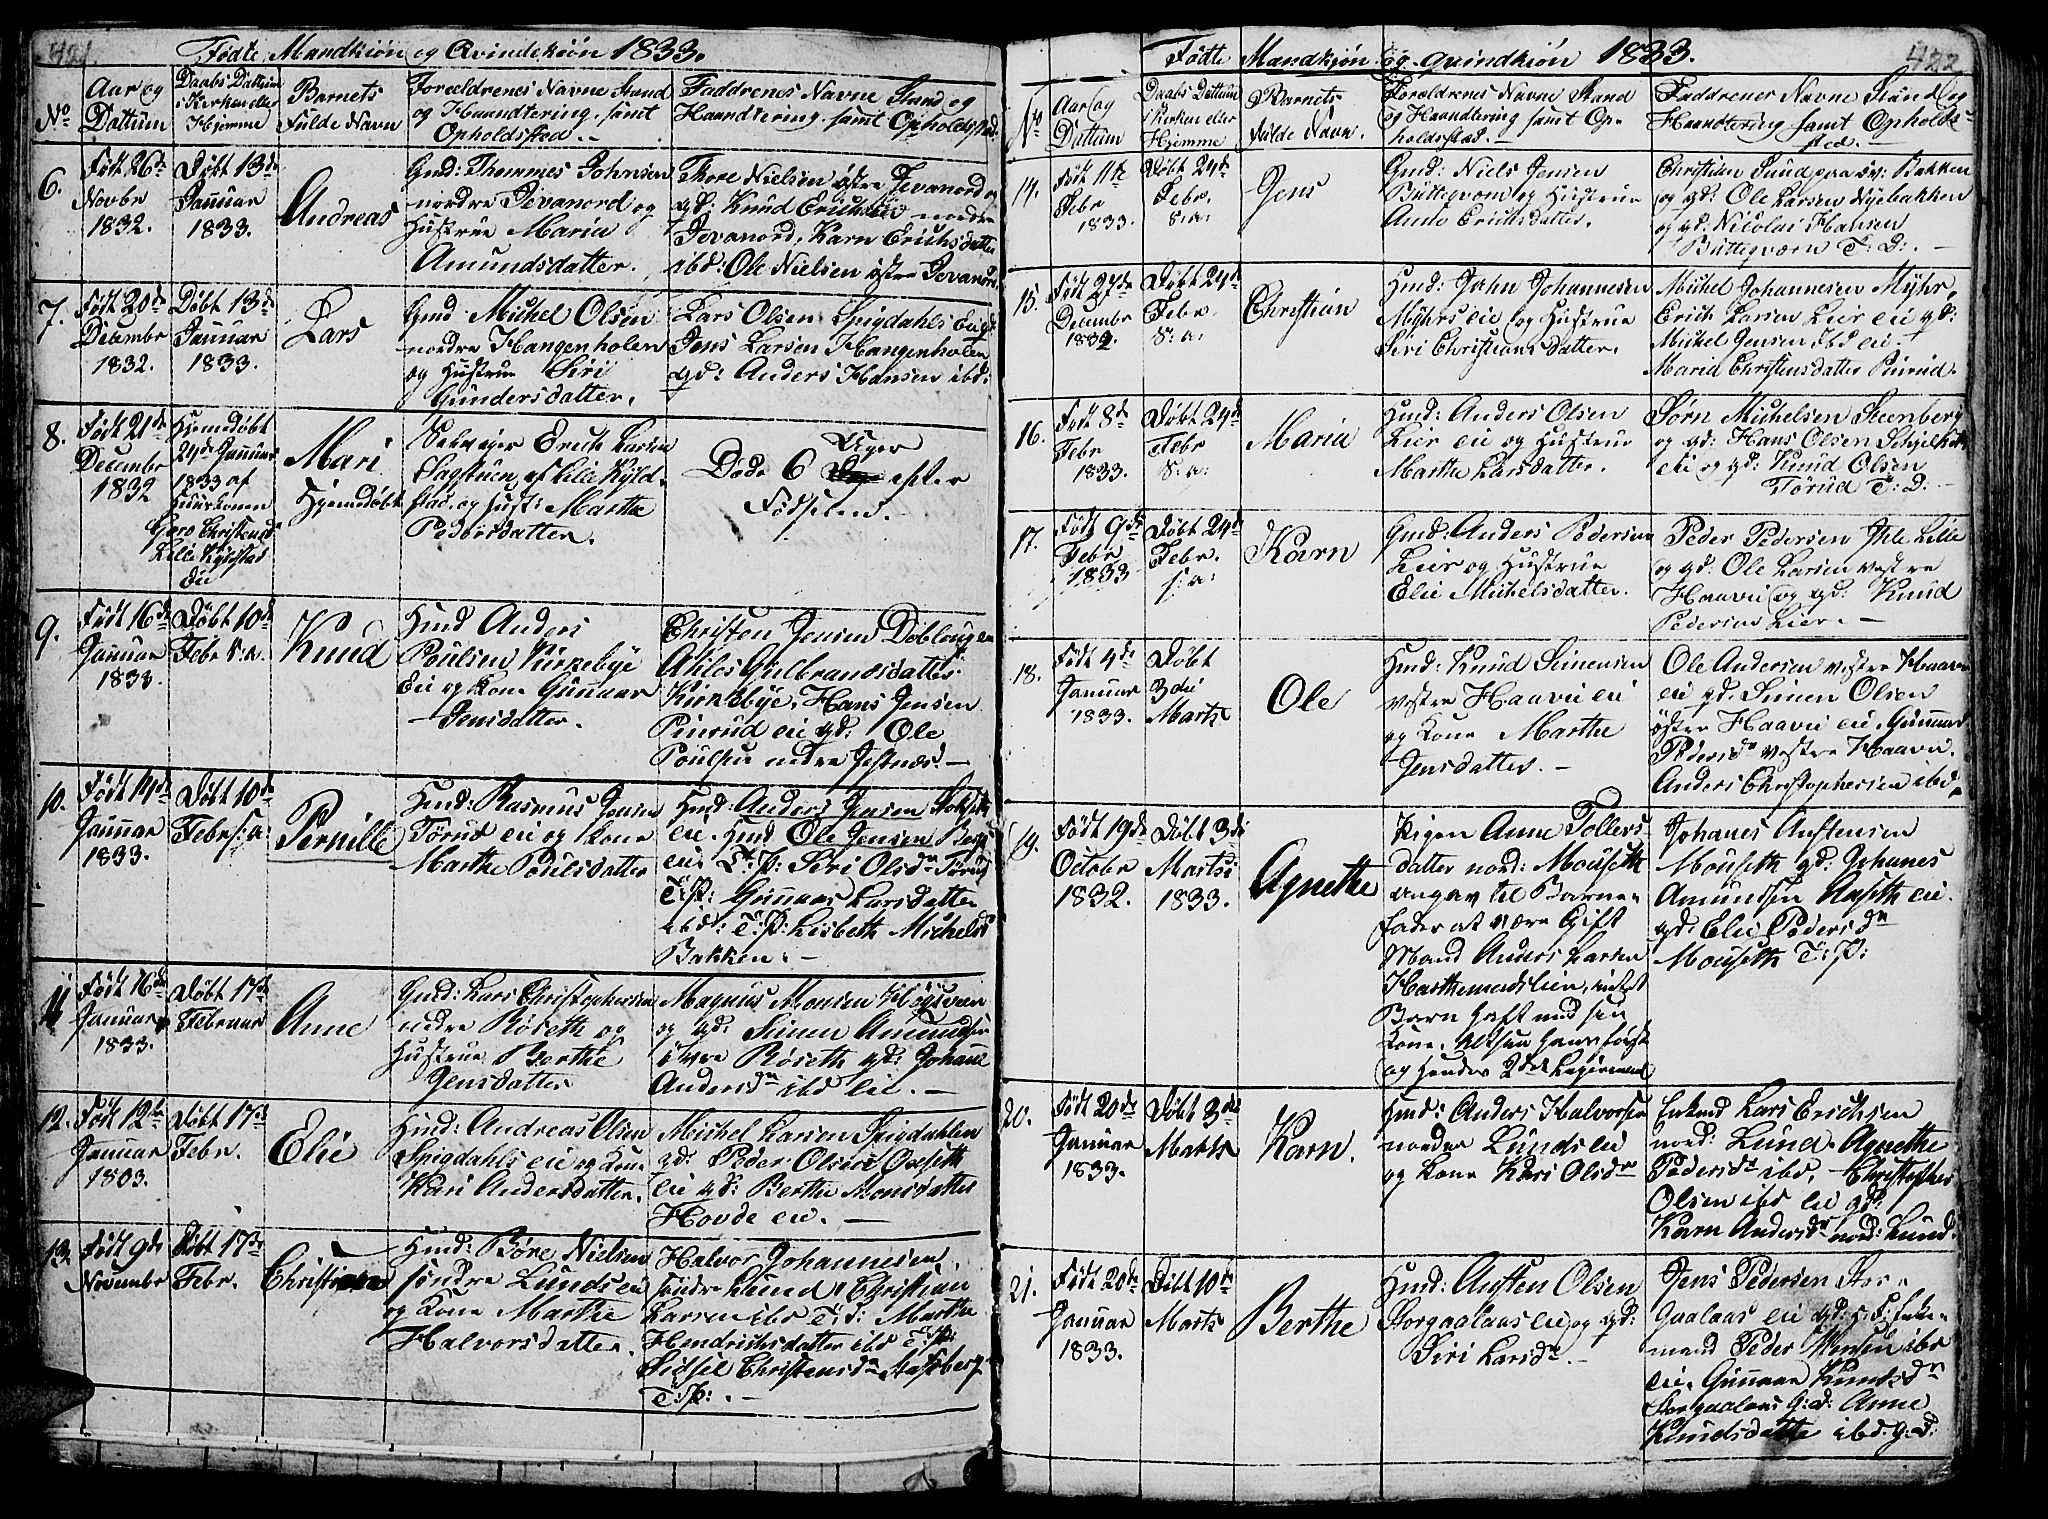 421.
Fødte Mandkiøn og Qvindekiøn 1833.
No
Aar og
Dattum
Daabs Dattum
i Kirken eller
Hjemme
Barnets
Fulde Navn
Foreldrenes Navne Stand
og Haandtering, samt
Opholdsted.
Faddrenes Navne Stand og
Haandtering, samt Opholdsted.
6.
Født 26de
Novbr
1832.
Døbt 13de
Januar
1833.
Andreas
Gmd: Thommes Johnsen
nordre Jevanord og
Hustrue Maria
Amundsdatter.
Thore Nielsen østre Jevanord
gd: Knud Erichsen nordre
Jevanord, Karn Erichsdatter
ibd: Ole Nielsen østre Jevanord
7.
Født 20de
Decembr
1832.
Døbt 13de
Januar
1833.
Lars
Gmd Michel Olsen
nordre Hangenholen
og Hustrue Siri
Gundersdatter.
Lars Olsen Spigdahls Eie gd:
Jens Larsen Hangenholen
gd: Anders Hansen ibd:
8.
Født 21de
Decembr
1832
Hjemdøbt
24de Januar
1833 af
Huuskonen
Goro Christensd
Lille Kyldstad
Eie
Mari
Hjemdøbt
Erich Larsen
Sagstuen af Lille Kyld-
stad og Hust: Marthe
Pedersdatter.
Døde 6 Uger efter
Fødselen.
9.
Født 16de
Januar
1833.
Døbt 10de
Febr S:a.
Knud
Hmd Anders
Poulsen Kirkebye
Eie og Kone Gunnaar
Jensdatter.
Christen Jensen Dobloug
Ahles Gulbrandsdatter
Kirkebye, Hans Jensen
Pinrud eie gd: Ole
Poulsen nedre Jestnæs.
10.
Født 14de
Januar
1833.
Døbt 10de
Febr s: a:
Pernille
Hmd: Rasmus Jensen
Tørud eie og Kone
Marthe Poulsdatter
Hmd: Anders Jensen
eie. Hmd Ole Jensen Berg
eie, T:P: Siri Olsdr Tørud
T:P: Gunnaar Larsdatter
ibd: T:P: Lisbeth Michelsd
Bakken.
11
Født 16de
Januar
1833.
Døbt 17de
Februar
Anne
Gmd: Lars Christophersen
nedre Røseth og
Hustrue Berthe
Jensdatter
Magnus Monsen
og gd: Simen Amundsen
øvre Røseth gd: Johane
Andersdr ibd eie.
12.
Født 12te
Januar
1803.
Døbt 17de
Febr.
Elie
Hmd: Andreas Olsen
Spigdahls eie og Kone
Kari Andersdatter.
Michel Larsen Spigdahlen
gd: Peder Olsen
eie gd: Berthe Monsdatter
Hovde eie.
13.
Født 9de
Novembr
Døbt 17de
Febr.
Christian
Hmd: Børe Nielsen
søndre Lunds eie
og Kone Marthe
Halvorsdatter.
Halvor Johannesen
søndre Lund, Christian
Larsen ibd T: d: Marthe
Hendrichsdatter ibd T:P:
Sidsel Christensdr
T:P:
422
Fødte Mandkjøn og Qvindkiøn 1833.
No
Aar og
Dattum
Daabs Dattum
i Kirken eller
Hjemme
Barnets
fulde Navn.
Foreldrenes Navne Stand
og Haandtering samt Op-
holdsstad.
Faddrenes Navne Stand og
Haandtering samt Opholds-
sted.
14.
Født 11te
Febr
1833.
Døbt 24de
Febr.
S: a:
Jens
Gmd: Niels Jensen
Buttegværn og Hustrue
Anne Erichsdatter.
Christian Lund paa Bakken
og gd: Ole Larsen Nyebakken
og gd. Nicolai Hansen
Buttegværn T: D:
15.
Født 27de
Decembr
1832.
Døbt 24de
Febr.
S: a:
Christian
Hmd: John Johannesen
Myhrs eie og Hustrue
Siri Christiansdatter.
Michel Johannesen Myhr,
Erich Larsen Lier eie gd:
Michel Jensen ibd eie.
Maria Christensdatter Pinrud.
16.
Født 8de
Febr
1833.
Døbt 24de
Febr
S: a:
Maria
Hmd: Anders Olsen
Lier eie og Hustrue
Marthe Larsdatter.
Sørn Michelsen Steenberg
og gd: Hans Olsen
eie og gd: Knud Olsen
Tørud T: D:
17.
Født 9de
Febr
1833
Døbt 24de
Febr.
s: a:
Karn
Gmd: Anders Pedersen
Lier og Hustrue
Elie Michelsdatter.
Peder Pedersen Ihle Lille
og gd: Ole Larsen vestre
Haavie og gd: Knud
Pedersen Lier.
18.
Født 4de
Januar
1833.
Døbt
3die
Marts
Ole
Hmd: Knud Simensen
vestre Haavie eie
og Kone Marthe
Jensdatter.
Ole Andersen vestre Haavie
eie gd. Simen Olsen
østre Haavie eie. Gunnaar
Pedersdr vestre Haavie.
Anders Christophersen ibd.
19.
Født 19de
Octobr
1832.
Døbt 3de
Marts
1833.
Agnethe
Pigen Anne Tollefs-
datter nord: Mouseth
angav til Barne-
fader at være Gift
Mand Anders Larsen
Barn Haft med sin
Kone, Altsaa Hans første
og Hendes 2det Leiermaal
Johanes Austensen
Mouseth gd: Johanes
Amundsen Aaseth eie.
gd: Elie Pedersdr
Mouseth T:P:
20.
Født 20de
Januar
1833.
Døbt 3de
Marts
Karn.
Hmd: Anders Halvorsen
nordre Lunds eie
og Kone Kari Olsdr
Enkmd Lars Erichsen
nord: Lund. Agnethe
Pedersdr ibd, Christopher
Olsen ibd eie gd:
Karn Andersdr nord: Lund.
21.
Født 20de
Januar
1833.
Døbt 10de
Marts
Berthe
Hmd: Austen Olsen
Storgaalaas eie og gd:
Siri Larsdr.
Jens Pedersen Stor-
gaalaas eie gd: Enke-
mand Peder ibd
eie. Gunnaar Knudsdr
Storgaalaas G: d: Anne
Knudsdatter ibd. g: d: